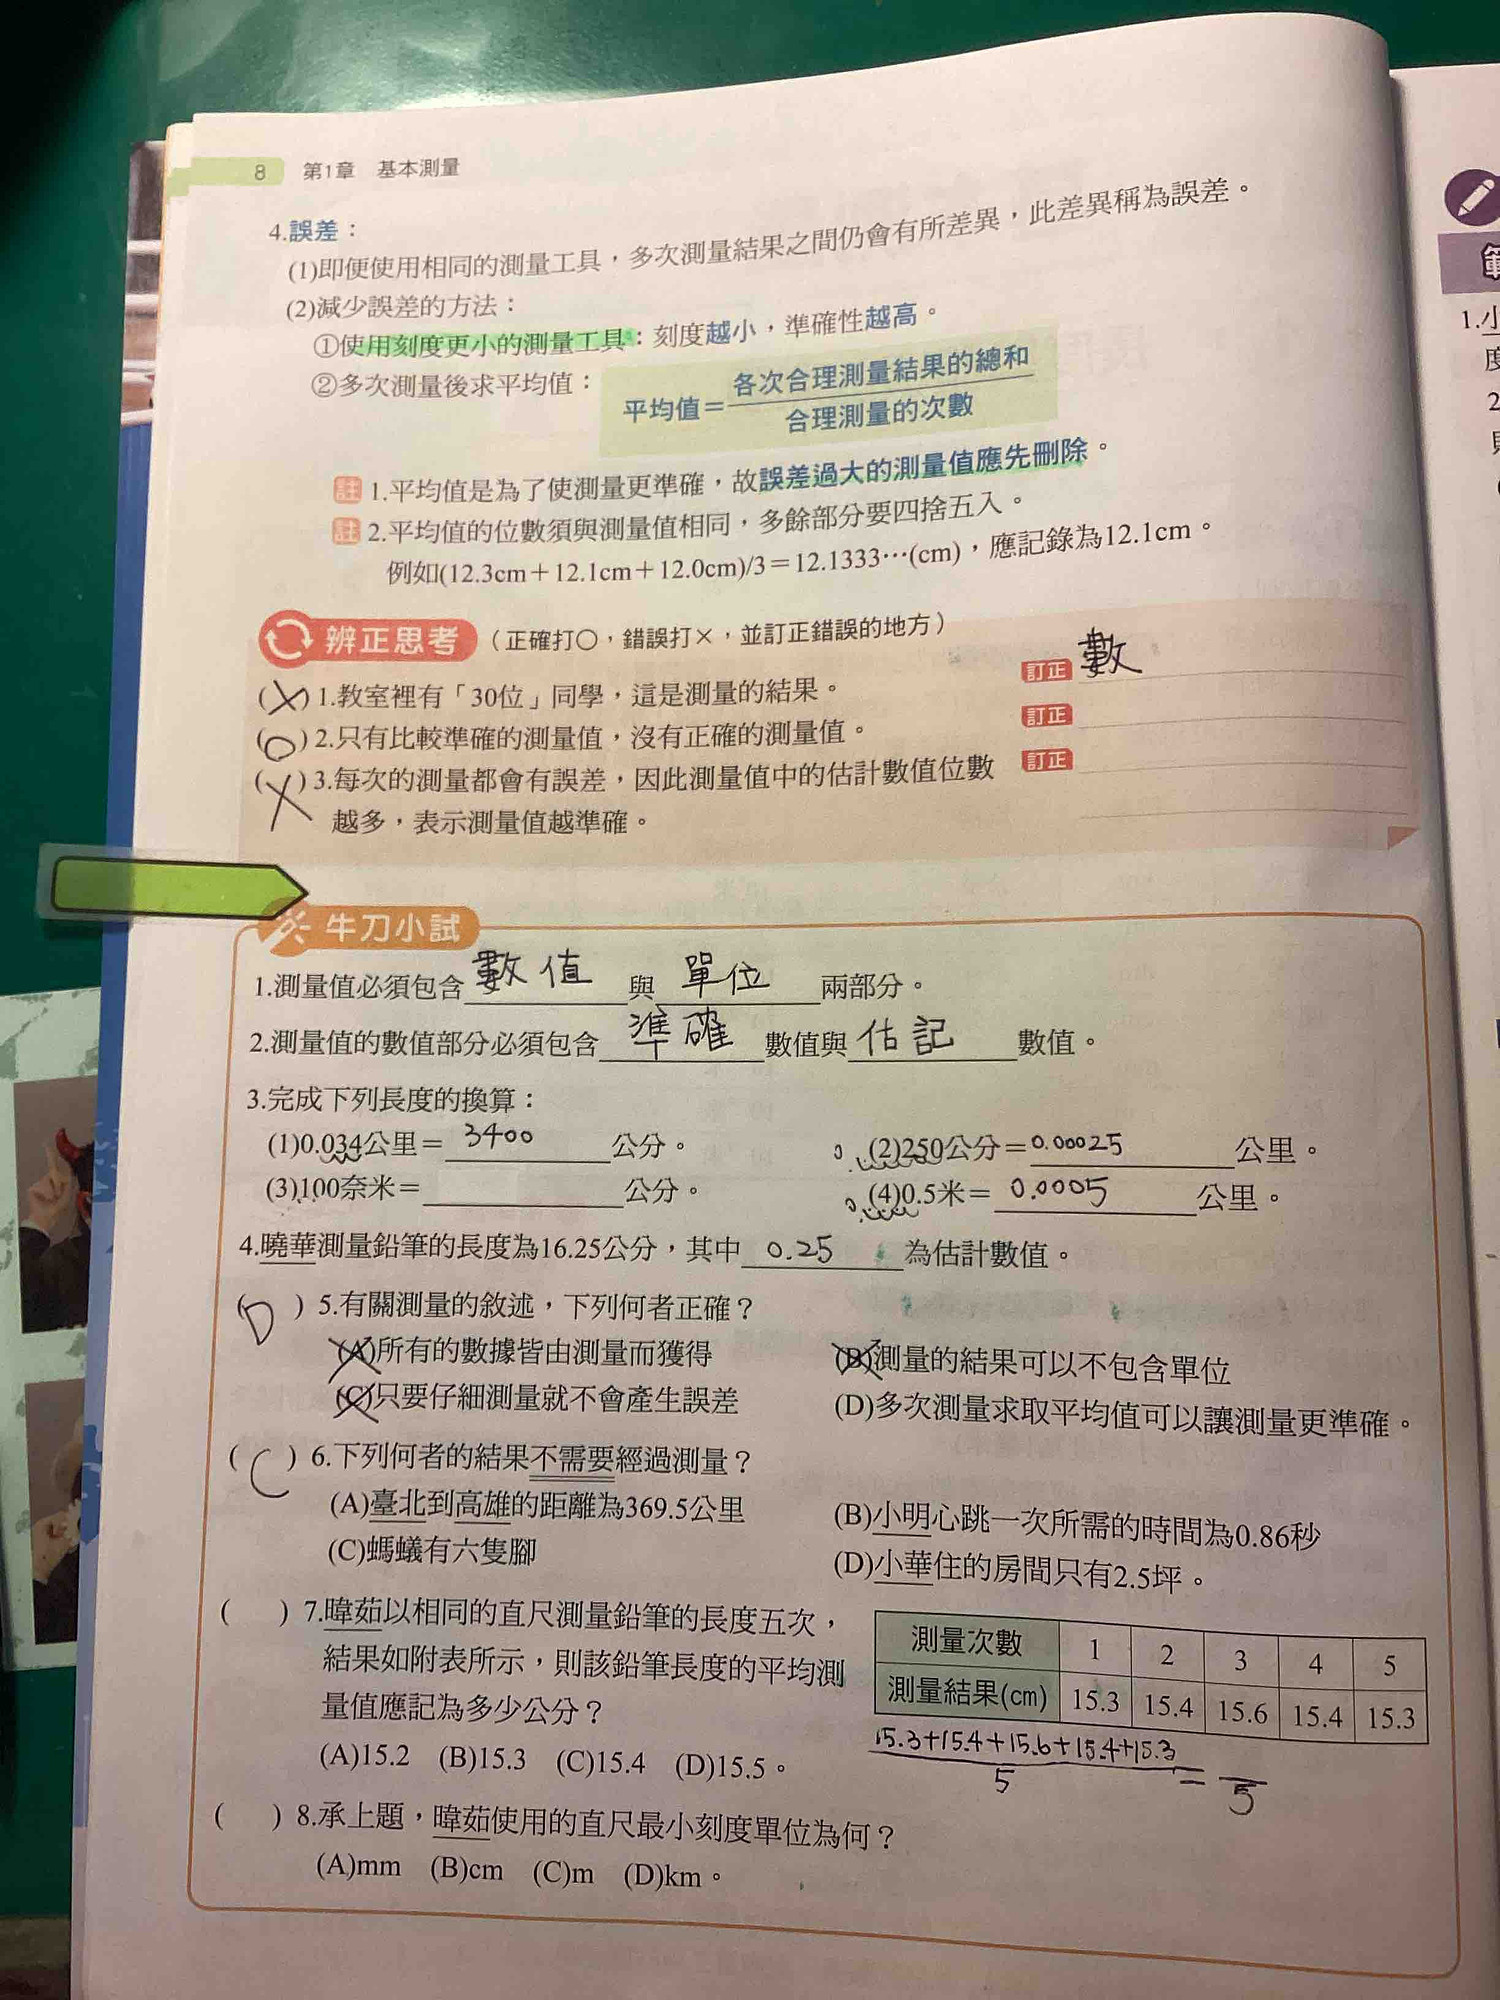 8 第1章 基本測量
4.誤差：
(1)即便使用相同的測量工具，多次測量結果之間仍會有所差異，此差異稱為誤差。
(2)減少誤差的方法：
①使用刻度更小的測量工具：刻度越小，準確性越高。
②多次測量後求平均值：
平均值＝各次合理測量結果的總和
合理測量的次數
註 1.平均值是為了使測量更準確，故誤差過大的測量值應先刪除。
註 2.平均值的位數須與測量值相同，多餘部分要四捨五入。
例如(12.3cm＋12.1cm＋12.0cm)/3＝12.1333⋯(cm)，應記錄為12.1cm。
辨正思考（正確打○，錯誤打×，並訂正錯誤的地方）
(X) 1.教室裡有「30位」同學，這是測量的結果。 訂正 數
(O) 2.只有比較準確的測量值，沒有正確的測量值。 訂正
(X) 3.每次的測量都會有誤差，因此測量值中的估計數值位數 訂正
越多，表示測量值越準確。
牛刀小試
1.測量值必須包含數值與單位兩部分。
2.測量值的數值部分必須包含準確數值與估記數值。
3.完成下列長度的換算：
(1)0.034公里＝3400公分。 (2)250公分＝0.00025公里。
(3)100奈米＝公分。 (4)0.5米＝0.0005公里。
4.曉華測量鉛筆的長度為16.25公分，其中0.25為估計數值。
(D) 5.有關測量的敘述，下列何者正確？
(A)所有的數據皆由測量而獲得 (B)測量的結果可以不包含單位
(C)只要仔細測量就不會產生誤差 (D)多次測量求取平均值可以讓測量更準確。
(C) 6.下列何者的結果不需要經過測量？
(A)臺北到高雄的距離為369.5公里 (B)小明心跳一次所需的時間為0.86秒
(C)螞蟻有六隻腳 (D)小華住的房間只有2.5坪。
( ) 7.暐茹以相同的直尺測量鉛筆的長度五次，
結果如附表所示，則該鉛筆長度的平均測
量值應記為多少公分？
(A)15.2 (B)15.3 (C)15.4 (D)15.5。
測量次數 1 2 3 4 5
測量結果(cm) 15.3 15.4 15.6 15.4 15.3
15.3+15.4+15.6+15.4+15.3
5 = 5
( ) 8.承上題，暐茹使用的直尺最小刻度單位為何？
(A)mm (B)cm (C)m (D)km。
1.小
度
2